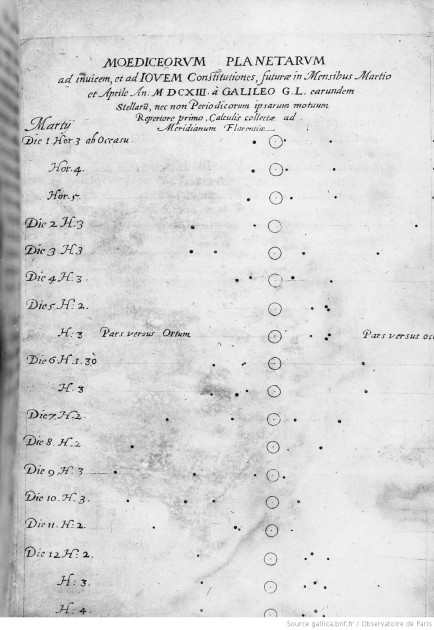 MOEDICEORVM PLANETARVM
ad inuicem, et ad IOVEM Constitutiones, futuræ in Mensibus Martio
et Aprile An: M DCXIII. à GALILEO G.L. earundem
Stellarũ, nec non Periodicorum ipsarum motuum
Repertore primo, Calculis collectæ ad
Meridianum Florentiæ
Martij
Die 1. Hor. 3 ab Occasu
Hor. 4.
Hor. 5.
Die 2 H. 3
Die 3 H. 3
Die 4 H. 3
Die 5. H. 2.
H. 3 Pars versus Ortum Pars versus occ
Die 6 H. 1. 30
H. 3
Die 7. H. 2
Die 8. H. 2
Die 9 H: 3
Die 10. H. 3.
Die 11. H. 2.
Die 12 H: 2.
H: 3.
H: 4
Source gallica.bnf.fr / Observatoire de Paris